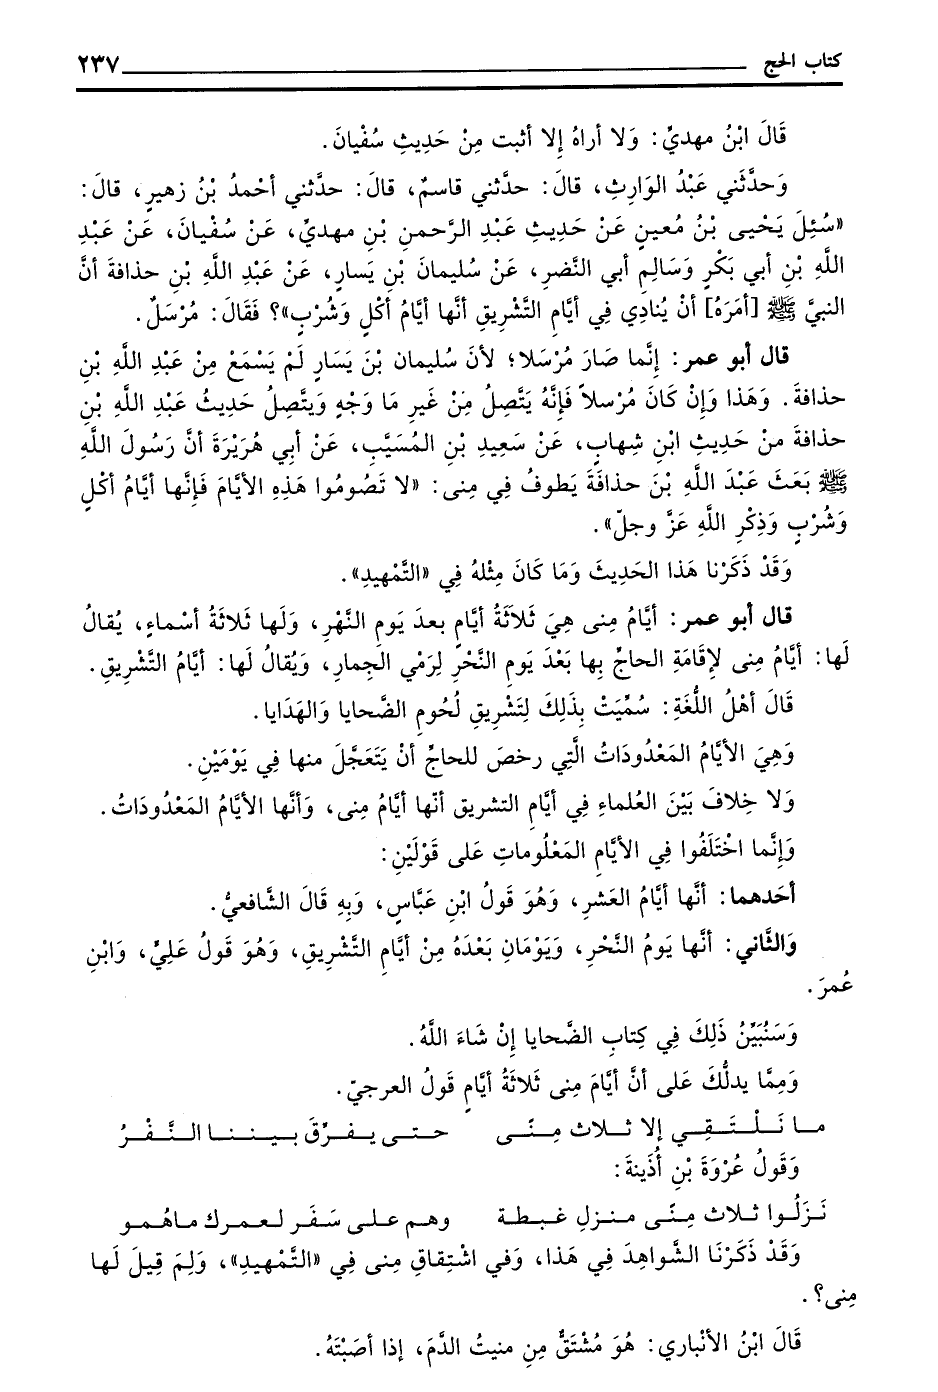 كتاب الحج ٢٣٧
قَالَ ابْنُ مهديٍّ: وَلا أراهُ إلا أثبت مِنْ حَدِيثِ سُفْيانَ.
وَحدَّثَني عَبْدُ الوَارِثِ، قالَ: حدَّثني قاسمٌ، قالَ: حدَّثني أحْمدُ بْنُ زهيرٍ، قالَ:
«سُئِلَ يَحْيى بْنُ مُعينٍ عَنْ حَدِيثِ عَبْدِ الرَّحمنِ بْنِ مهديٍّ، عَنْ سُفْيانَ، عَنْ عَبْدِ
اللَّهِ بْنِ أبي بَكْرٍ وَسَالِمِ أبي النَّضرِ، عَنْ سُليمانَ بْنِ يَسارٍ، عَنْ عَبْدِ اللَّهِ بْنِ حذافةَ أنَّ
النبيَّ ﷺ [أمَرَهُ] أنْ يُنادِي فِي أيَّامِ التَّشْرِيقِ أنَّها أيَّامُ أكْلٍ وَشُرْبٍ»؟ فَقَالَ: مُرْسَلٌ.
قال أبو عمر: إنَّما صَارَ مُرْسَلا؛ لأنَ سُليمان بْنَ يَسَارٍ لَمْ يَسْمَعْ مِنْ عَبْدِ اللَّهِ بْنِ
حذافةَ. وَهَذا وَإنْ كَانَ مُرْسلاً فَإنَّهُ يَتَّصِلُ مِنْ غَيرِ مَا وَجْهٍ وَيتَّصِلُ حَدِيثُ عَبْدِ اللَّهِ بْنِ
حذافةَ منْ حَدِيثِ ابْنِ شِهابٍ، عَنْ سَعِيدِ بْنِ المُسَيَّبِ، عَنْ أبِي هُرَيْرَةَ أنَّ رَسُولَ اللَّهِ
ﷺ بَعَثَ عَبْدَ اللَّهِ بْنَ حذافَةَ يَطوفُ فِي مِنى: «لا تَصُومُوا هَذِهِ الأيَّامَ فَإنَّها أيَّامُ أكْلٍ
وَشُرْبٍ وَذِكْرِ اللَّهِ عَزَّ وجلّ».
وَقَدْ ذَكَرْنا هَذا الحَدِيثَ وَمَا كَانَ مِثْلهُ فِي «التَّمْهِيدِ».
قال أبو عمر: أيَّامُ مِنى هِيَ ثَلاَثَةُ أيَّامٍ بعدَ يَومِ النَّهْرِ، وَلَها ثَلاثَةُ أسْماءٍ، يُقالُ
لَها: أيَّامُ مِنى لإقَامَةِ الحاجِّ بِها بَعْدَ يَومِ النَّحْرِ لِرَمْي الجِمارِ، وَيُقالُ لَها: أيَّامُ التَّشْرِيقِ.
قَالَ أهْلُ اللُّغَةِ: سُمِّيَتْ بِذَلِكَ لِتَشْرِيقِ لُحُومِ الضَّحايا وَالهَدَايا.
وَهِيَ الأيَّامُ المَعْدُودَاتُ الَّتِي رخصَ للحاجِّ أنْ يَتَعَجَّلَ منها فِي يَوْمَيْنِ.
وَلا خِلافَ بَيْنَ العُلماءِ فِي أيَّامِ التشريق أنّها أيَّامُ مِنى، وَأنَّها الأيَّامُ المَعْدُودَاتُ.
وَإنَّما اخْتَلَفُوا فِي الأيَّامِ المَعْلُوماتِ عَلى قَوْلَيْنِ:
أحَدهما: أنَّها أيَّامُ العَشرِ، وَهُوَ قَولُ ابْنِ عَبَّاسٍ، وَبِهِ قَالَ الشَّافعيُّ.
وَالثَّاني: أنَّها يَومُ النَّحْرِ، وَيَوْمَانِ بَعْدَهُ مِنْ أيَّامِ التَّشْرِيقِ، وَهُوَ قَولُ عَلِيٍّ، وَابْنِ
عُمرَ.
وَسَنُبَيِّنُ ذَلِكَ فِي كِتابِ الضَّحايا إنْ شَاءَ اللَّهُ.
وَمِمَّا يدلُّكَ عَلى أنَّ أيَّامَ مِنى ثَلاثَةُ أيَّامٍ قَولُ العرجيّ.
مـا نَـلْـتَـقِـي إلا ثـلاث مِـنًـى حـتـى يـفـرِّقَ بـيـنـنـا الـنَّـفْـرُ
وَقَولُ عُرْوَةَ بْنِ أُذَينةَ:
نَـزَلُـوا ثـلاث مِـنًـى مـنـزلِ غـبـطـة وهـم عـلـى سَـفَـر لـعـمـرك مـاهُـمـو
وَقَدْ ذَكَرْنَا الشَّواهِدَ فِي هَذا، وَفي اشْتِقاقِ مِنى فِي «التَّمْهِيدِ»، وَلِمَ قِيلَ لَها
مِنى؟.
قَالَ ابْنُ الأنْباري: هُوَ مُشْتَقٌّ مِنِ منيتُ الدَّمَ، إذا أصَبْتَهُ.